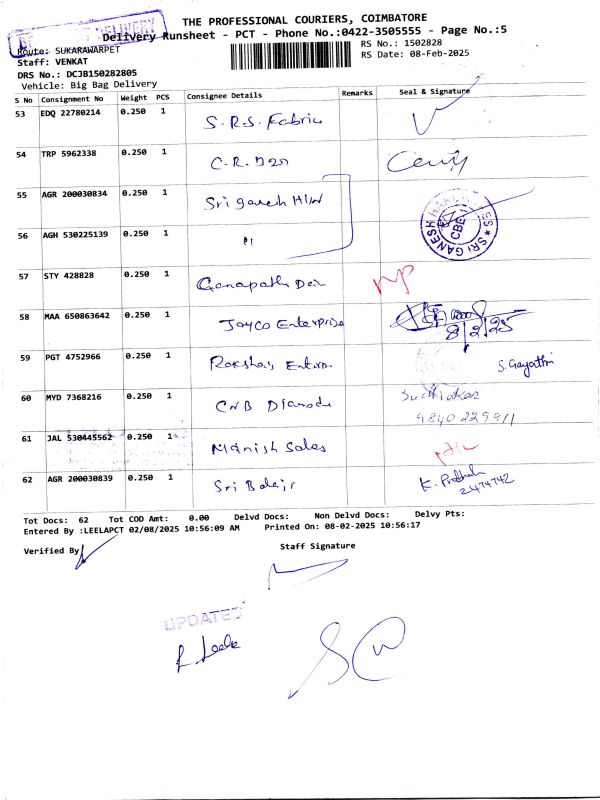 THE PROFESSIONAL COURIERS, COIMBATORE
DELIVERY
Delivery Runsheet - PCT - Phone No.:0422-3505555 - Page No.:5
Route: SUKARAWARPET
RS No.: 1502828
Staff: VENKAT
RS Date: 08-Feb-2025
DRS No.: DCJB150282805
Vehicle: Big Bag Delivery
S No Consignment No Weight PCS Consignee Details Remarks Seal & Signature
53 EDQ 22780214 0.250 1 S.R.S. Fabric
54 TRP 5962338 0.250 1 C.R.
55 AGR 200030834 0.250 1 Sri ganesh
56 AGH 530225139 0.250 1 11
SRI GANESH CBE
57 STY 428828 0.250 1 Ganapathi
58 MAA 650863642 0.250 1 Joyco Enterprise 8/2/25
59 PGT 4752966 0.250 1 S. Gayathri
60 MYD 7368216 0.250 1 CNB Sudhakar
9840229911
61 JAL 530445562 0.250 1 Manish Sales
62 AGR 200030839 0.250 1 Sri Balaji K.
2474742
Tot Docs: 62 Tot COD Amt: 0.00 Delvd Docs: Non Delvd Docs: Delvy Pts:
Entered By :LEELAPCT 02/08/2025 10:56:09 AM Printed On: 08-02-2025 10:56:17
Verified By
Staff Signature
UPDATED